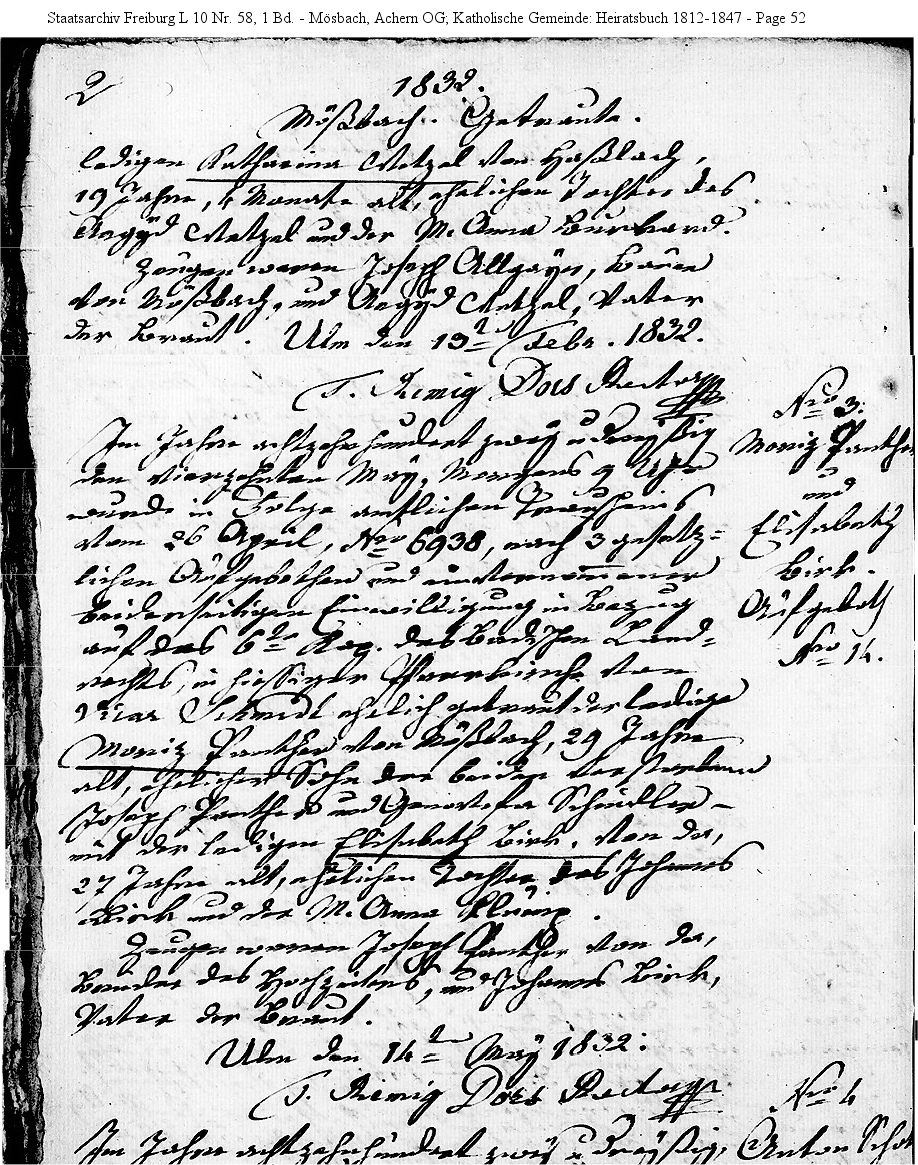 Staatsarchiv Freiburg L 10 Nr. 58, 1 Bd. - Mösbach, Achern OG; Katholische Gemeinde: Heiratsbuch 1812-1847 - Page 52
2
1832.
Mößbach. Getraute.
ledigen Katharina Wetzel von Haßlach,
19 Jahre, 4 Monate alt, ehelichen Tochter des
Aegyd Wetzel und der M. Anna Burkard.
Zeugen waren Joseph Allgayer, Bauer
von Mößbach, und Aegyd Wetzel, Vater
der Braut. Ulm den 13t Febr. 1832.
Remig Dors Rector
Im Jahre achtzehnhundert zwey u dreyßig
den vierzehnten May, Morgens 9 Uhr
wurde in Folge amtlichen Trauscheins
vom 26 April, Nro 6938, nach 3 gesetz=
lichen Aufgebothen und unternommener
beiderseitigen Einwilligung in Bezug
auf das 6te Kap. des Badischen Land=
rechts, in hiesiger Pfarrkirche von
Vicar Schmidt ehelich getraut der ledige
Moritz Panther von Mößbach, 29 Jahre
alt, ehelicher Sohn der beiden verstorbenen
Joseph Panther und Genovefa Schindler –
mit der ledigen Elisabeth Birk, von da,
27 Jahre alt, ehelichen Tochter des Johannes
Birk und der M. Anna
Zeugen waren Joseph Panther von da,
Bruder des Hochzeiters, und Johannes Birk,
Vater der Braut.
Ulm den 14t May 1832:
Remig Dors Rector
Nro 3.
Moriz Panther
und
Elisabeth
Birk.
Aufgeboth
Nro 14.
Nro 4
Im Jahre achtzehnhundert zwey u dreyßig, Anton